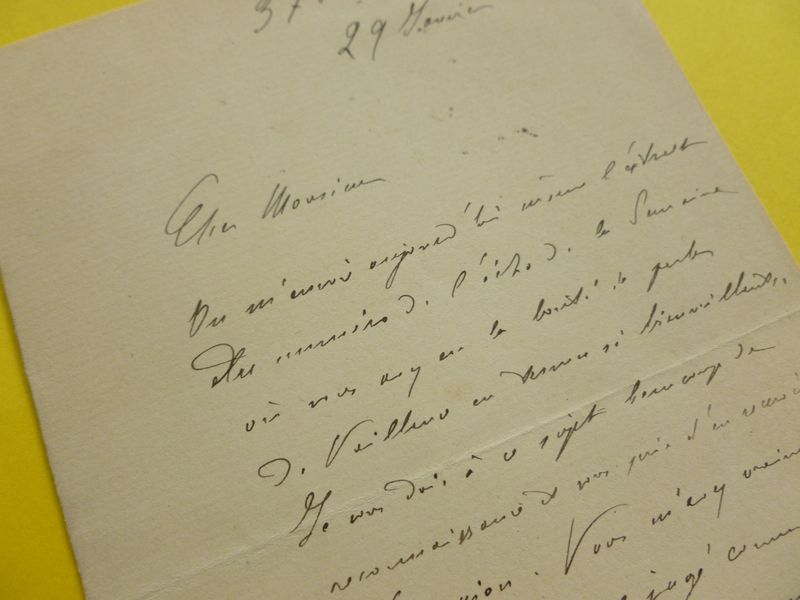 37
29 Janvier
Cher Monsieur
On m'envoie aujourd'hui même l'extrait
du numéro de l'écho de la Semaine
où vous avez eu la bonté de parler
de Veilleurs en termes si bienveillants.
Je vous dois à ce sujet beaucoup de
reconnaissance et vous prie d'en recevoir
Vous m'avez vraiment
jugé comme